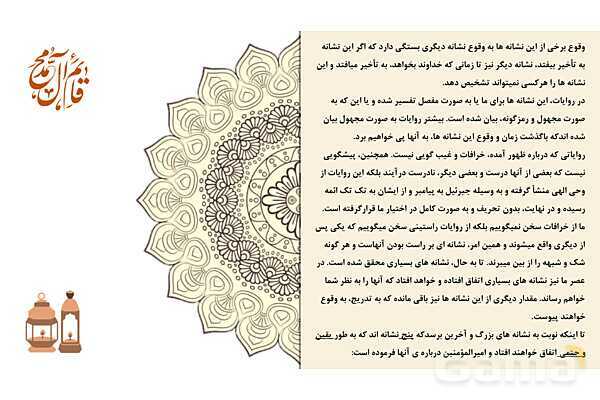 قائم آل محمد
وقوع برخی از این نشانه ها به وقوع نشانه دیگری بستگی دارد که اگر این نشانه
به تأخیر بیفتد، نشانه دیگر نیز تا زمانی که خداوند بخواهد، به تأخیر میافتد و این
نشانه ها را هرکسی نمیتواند تشخیص دهد.
در روایات، این نشانه ها برای ما یا به صورت مفصل تفسیر شده و یا این که به
صورت مجهول و رمزگونه، بیان شده است. بیشتر روایات به صورت مجهول بیان
شده اندکه باگذشت زمان و وقوع این نشانه ها، به آنها پی خواهیم برد.
روایاتی که درباره ظهور آمده، خرافات و غیب گویی نیست. همچنین، پیشگویی
نیست که بعضی از آنها درست و بعضی دیگر، نادرست در آیند بلکه این روایات از
وحی الهی منشأ گرفته و به وسیله جبرئیل به پیامبر و از ایشان به تک تک ائمه
رسیده و در نهایت، بدون تحریف و به صورت کامل در اختیار ما قرارگرفته است.
ما از خرافات سخن نمیگوییم بلکه از روایات راستینی سخن میگوییم که یکی پس
از دیگری واقع میشوند و همین امر، نشانه ای بر راست بودن آنهاست و هر گونه
شک و شبهه را از بین میبرند. تا به حال، نشانه های بسیاری محقق شده است. در
عصر ما نیز نشانه های بسیاری اتفاق افتاده و خواهد افتاد که آنها را به نظر شما
خواهم رساند. مقدار دیگری از این نشانه ها نیز باقی مانده که به تدریج، به وقوع
خواهند پیوست.
تا اینکه نوبت به نشانه های بزرگ و آخرین برسدکه پنج نشانه اند که به طور یقین
و حتمی اتفاق خواهند افتاد و امیرالمؤمنین درباره ی آنها فرموده است:
Gama